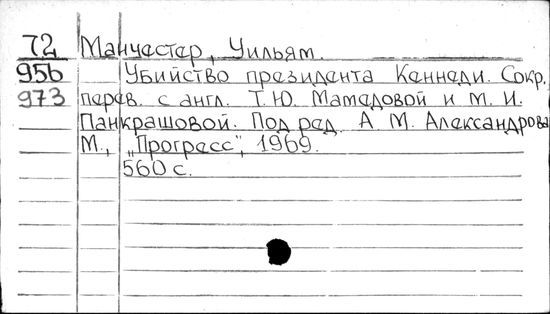 72 Манчестер, Уильям.
956 Убийство президента Кеннеди. Сокр.
973 перев. с англ. Т.Ю. Мамедовой и М. И.
Панкрашовой. Под ред. А М. Александрова
М., „Прогресс", 1969.
560 с.